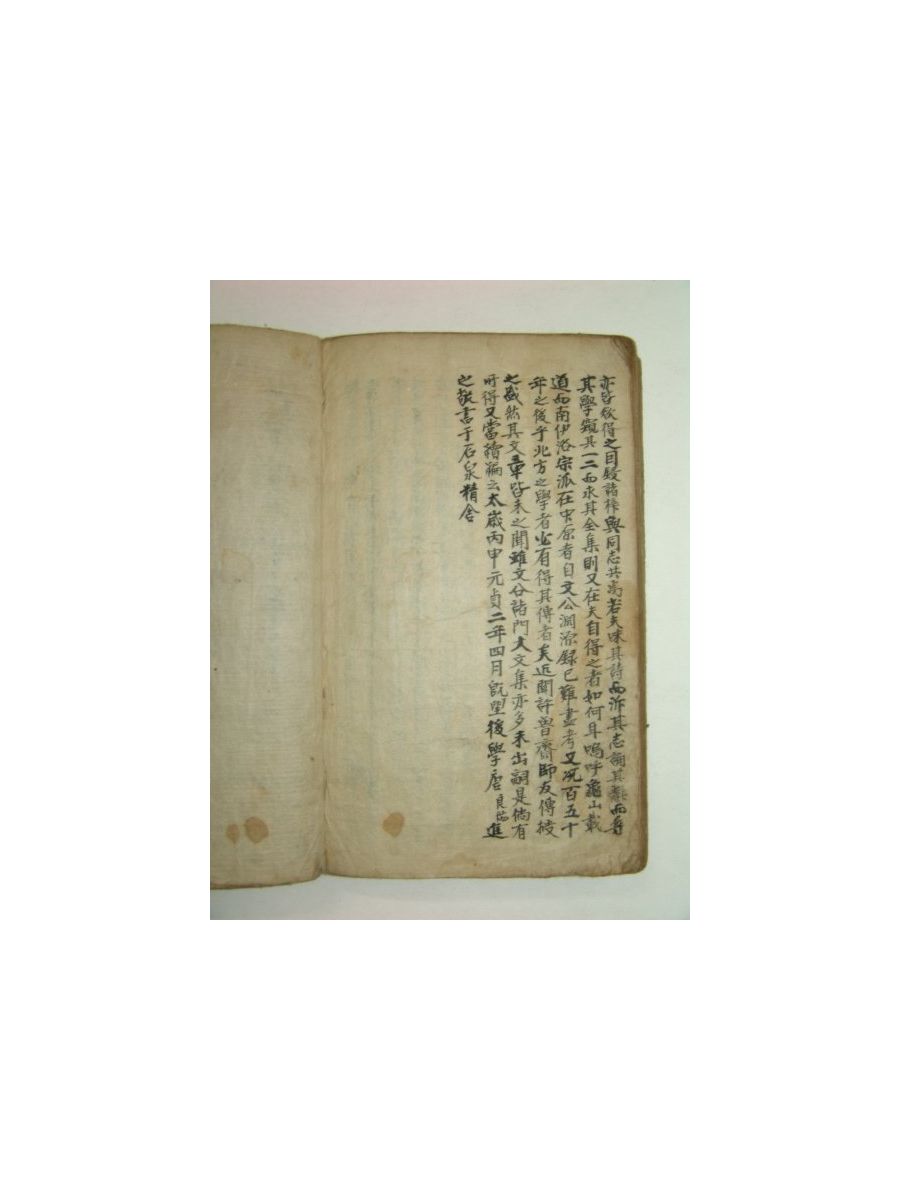 亦皆欲得之因鋟諸梓與同志共高若夫味其詩而泝其志誦其辭而尋
其學窺其一二而求其全集則又在夫自得之者如何耳嗚呼龜山載
道而南伊洛宗派在中原者自文公淵源錄已難盡考又况百五十
年之後乎北方之學者必有得其傳者矣近聞許魯齋師友傳授
之盛然其文章皆未之聞雖文公諸門人文集亦多未出嗣是倘有
所得又當續編云太歲丙申元貞二年四月旣望後學唐良瑞進
之敬書于石泉精舍